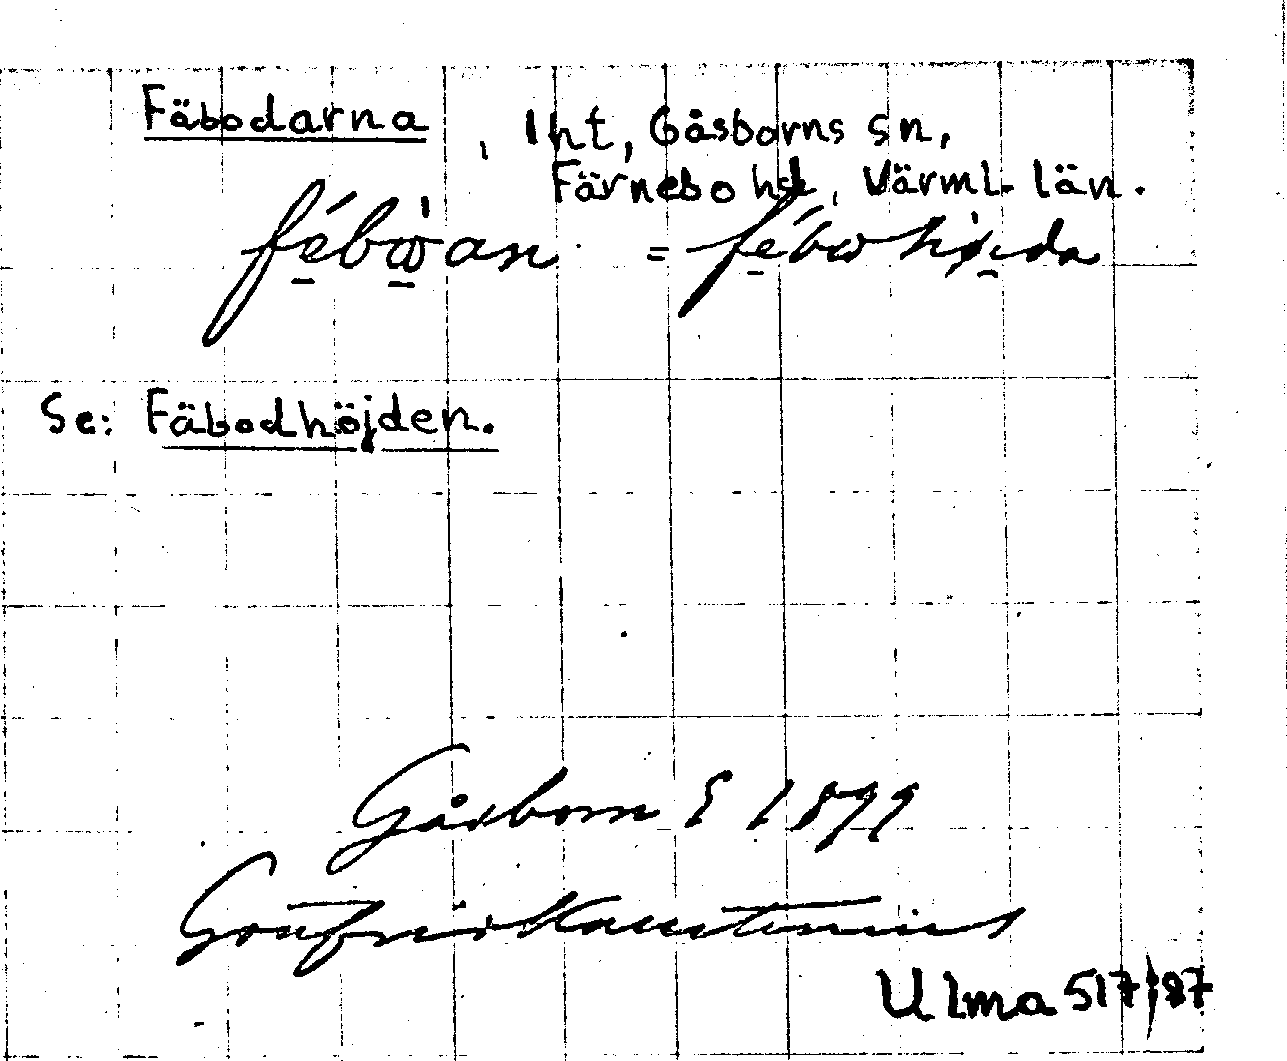 Fäbodarna, lht, Gåsborns sn,
Färnebo hd, Värml. län.
fébὼan = fébωhø̀jda
Se: Fäbodhöjden.
Gåsborn S 1899
Gottfrid Kallstenius
Ulma 517:87